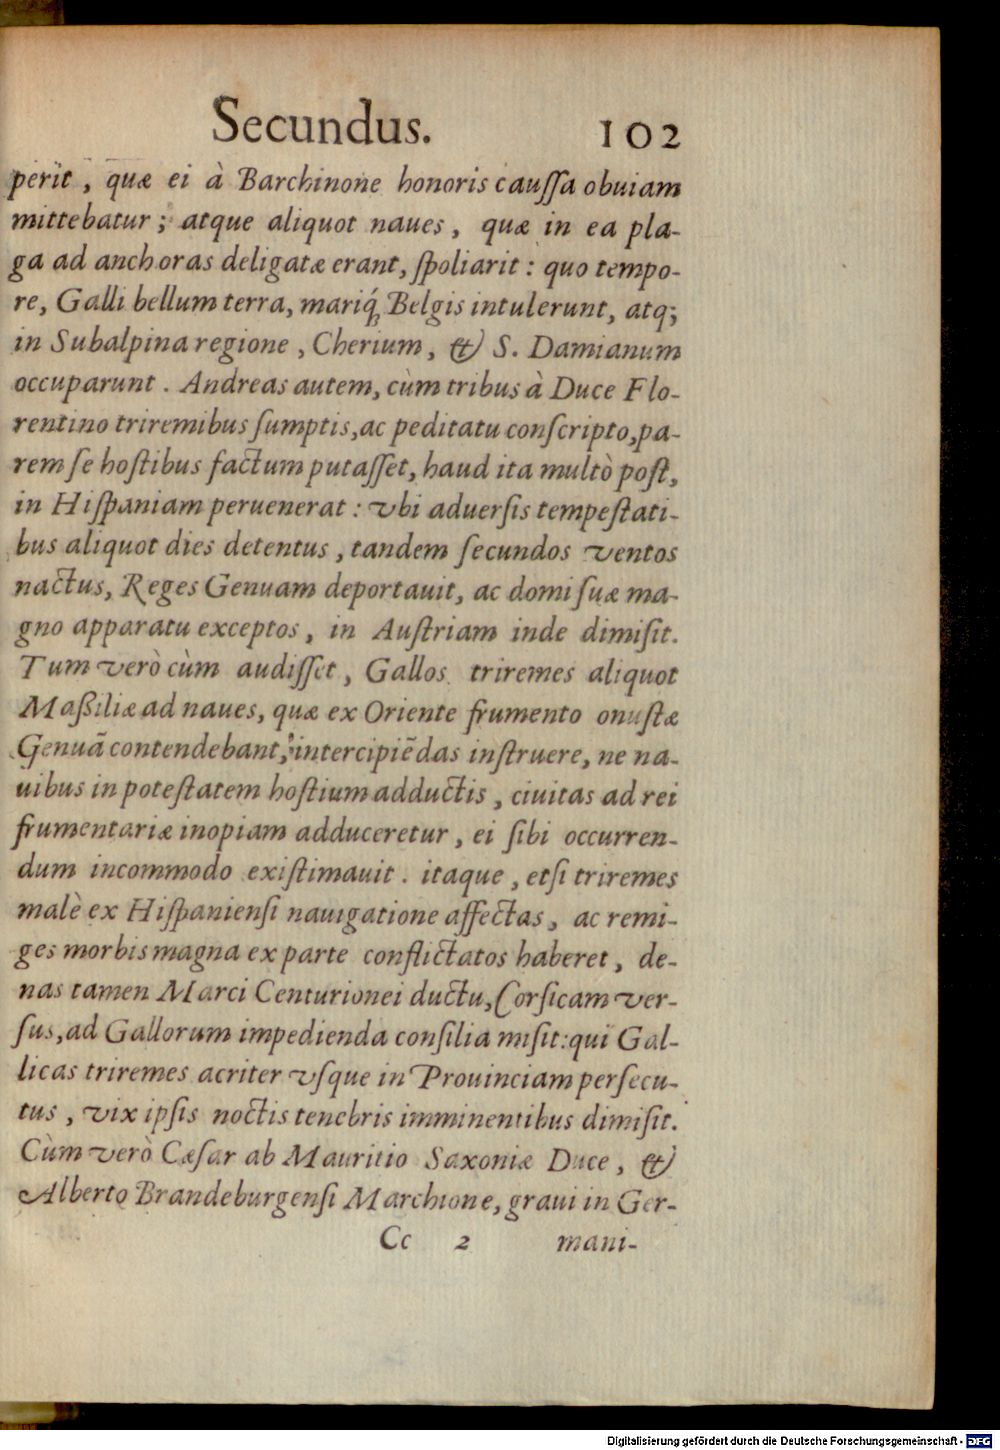 Secundus. 102
perit, quæ ei à Barchinone honoris caussa obuiam
mittebatur; atque aliquot naues, quæ in ea pla-
ga ad anchoras deligatæ erant, spoliarit: quo tempo-
re, Galli bellum terra, mariq́; Belgis intulerunt, atq;
in Subalpina regione, Cherium, & S. Damianum
occuparunt. Andreas autem, cùm tribus à Duce Flo-
rentino triremibus sumptis, ac peditatu conscripto, pa-
rem se hostibus factum putasset, haud ita multò post,
in Hispaniam peruenerat: vbi aduersis tempestati-
bus aliquot dies detentus, tandem secundos ventos
nactus, Reges Genuam deportauit, ac domi suæ ma-
gno apparatu exceptos, in Austriam inde dimisit.
Tum verò cùm audisset, Gallos triremes aliquot
Maßiliæ ad naues, quæ ex Oriente frumento onustæ
Genuã contendebant, intercipiẽdas instruere, ne na-
uibus in potestatem hostium adductis, ciuitas ad rei
frumentariæ inopiam adduceretur, ei sibi occurren-
dum incommodo existimauit. itaque, etsi triremes
malè ex Hispaniensi nauigatione affectas, ac remi-
ges morbis magna ex parte conflictatos haberet, de-
nas tamen Marci Centurionei ductu, Corsicam ver-
sus, ad Gallorum impedienda consilia misit: qui Gal-
licas triremes acriter vsque in Prouinciam persecu-
tus, vix ipsis noctis tenebris imminentibus dimisit.
Cùm verò Cæsar ab Mauritio Saxoniæ Duce, &
Alberto Brandeburgensi Marchione, graui in Ger-
Cc 2 mani-
Digitalisierung gefördert durch die Deutsche Forschungsgemeinschaft - DFG